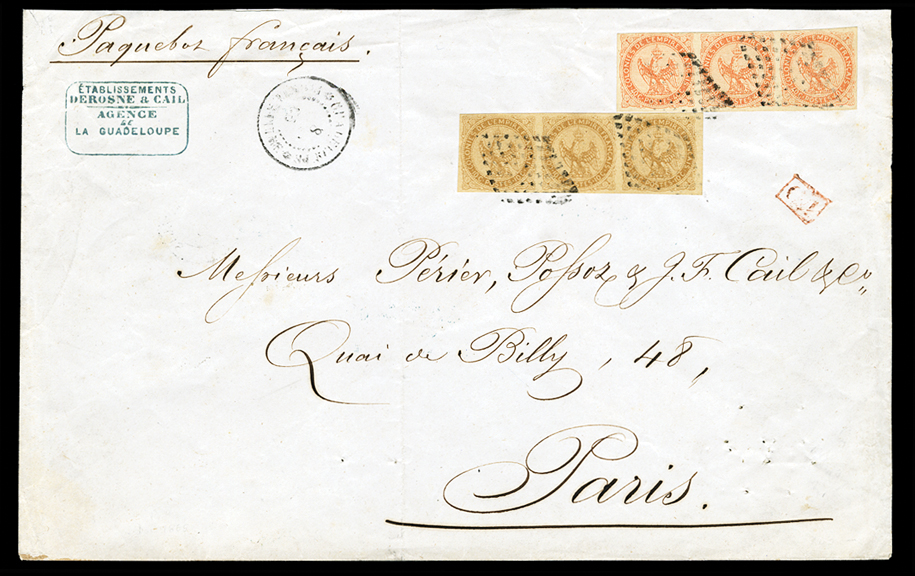 Paquebot français.
ÉTABLISSEMENTS
DEROSNE & CAIL
AGENCE
DE
LA GUADELOUPE
COLONIES DE L'EMPIRE FRANÇAIS
Messieurs Périer, Possoz & J. F. Cail & Co,
Quai de Billy, 48,
Paris.